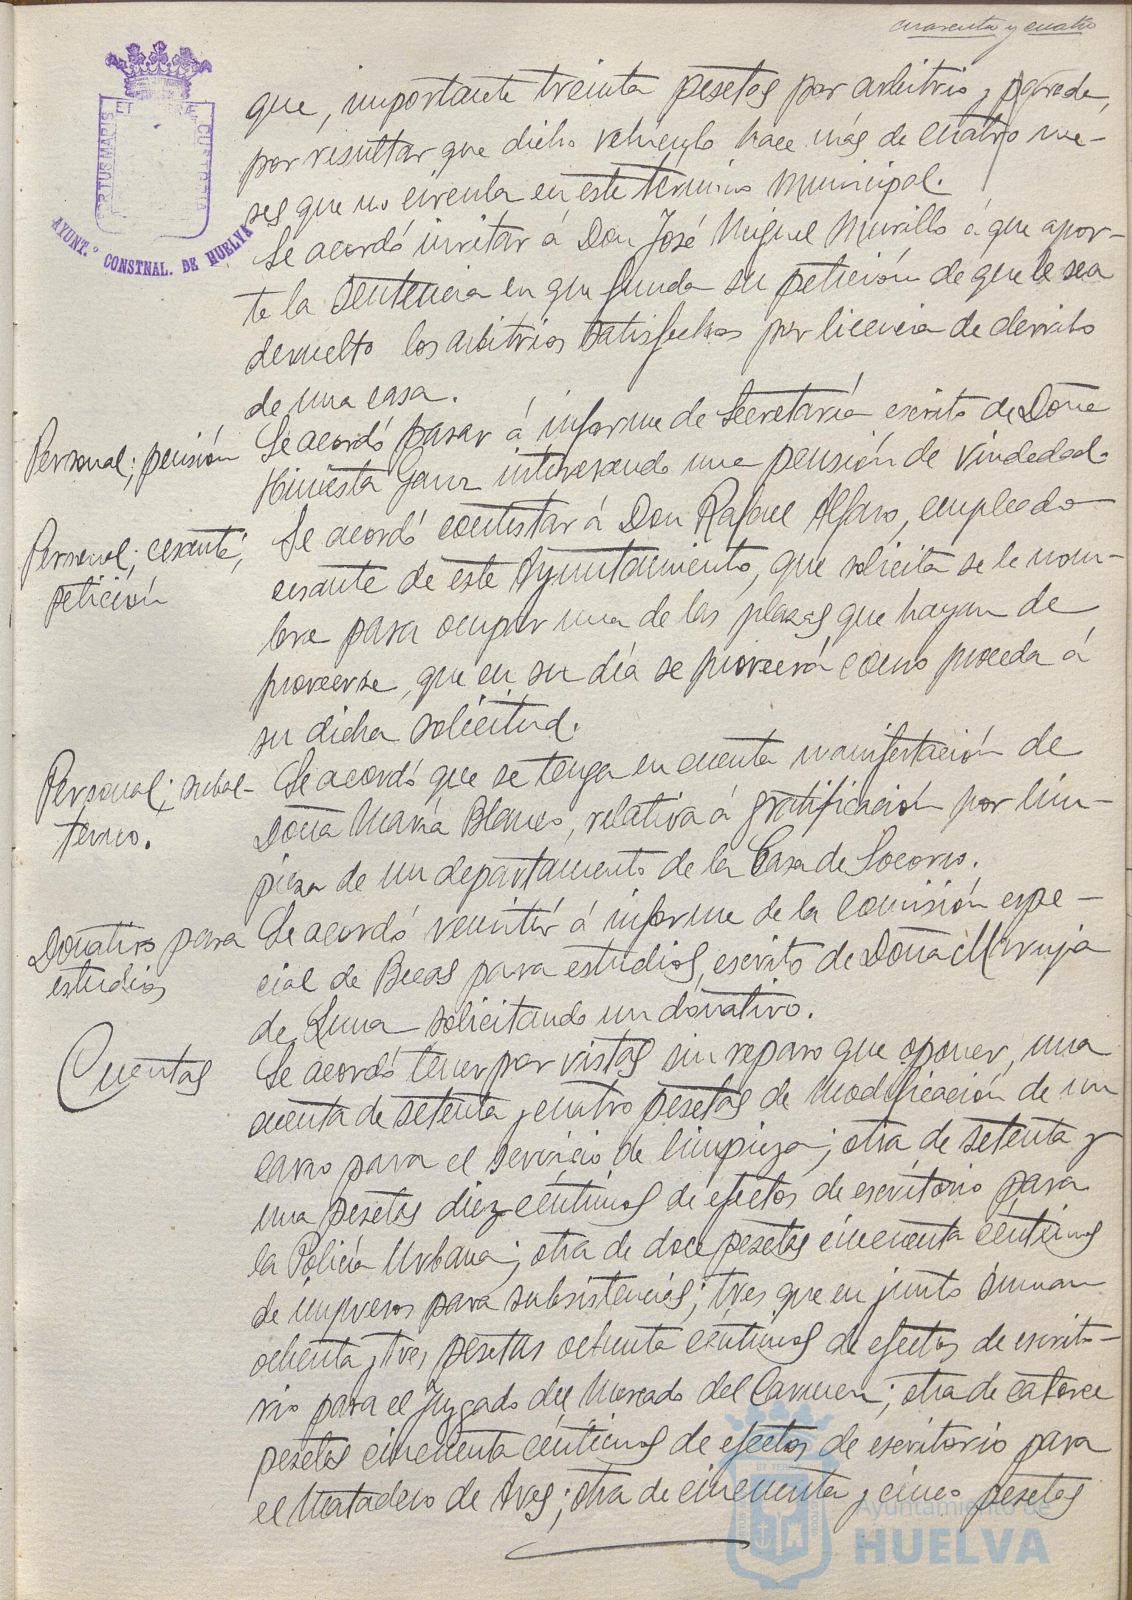 cuarenta y cuatro
PORTUS MARIS ET TERRÆ CUSTODIA
AYUNT.º CONSTNAL. DE HUELVA
que, importante treinta pesetas por arbitrio y parada,
por resultar que dicho vehículo hace más de cuatro me-
ses que no circula en este término municipal.
Se acordó invitar á Don José Miguel Murillo á que apor-
te la sentencia en que funda su petición de que le sea
devuelto los arbitrios satisfechos por licencia de derribo
de una casa.
Personal; pensión
Se acordó pasar á informe de Secretaría escrito de Doña
Hiniesta interesando una pensión de viudedad.
Personal; cesante,
petición
Se acordó contestar á Don Rafael Alfaro, empleado
cesante de este Ayuntamiento, que solicita se le nom-
bre para ocupar una de las plazas que hayan de
proveerse, que en su día se proveerá como proceda á
su dicha solicitud.
Personal; subal-
terno.
Se acordó que se tenga en cuenta manifestación de
Doña María Blanco, relativa á gratificación por lim-
pieza de un departamento de la Casa de Socorro.
Donativo para
estudios
Se acordó remitir á informe de la Comisión espe-
cial de Becas para estudios, escrito de Doña Maruja
de Luna solicitando un donativo.
Cuentas
Se acordó tener por vistas sin reparo que oponer, una
cuenta de setenta y cuatro pesetas de modificación de un
carro para el servicio de limpieza; otra de setenta y
una pesetas diez céntimos de efectos de escritorio para
la Policía Urbana; otra de doce pesetas cincuenta céntimos
de impresos para subsistencias; tres que en junto suman
ochenta y tres pesetas ochenta céntimos de efectos de escrito-
rio para el Juzgado del Mercado del Carmen; otra de catorce
pesetas cincuenta céntimos de efectos de escritorio para
el Matadero de Aves; otra de cincuenta y cinco pesetas
Ayuntamiento de
HUELVA